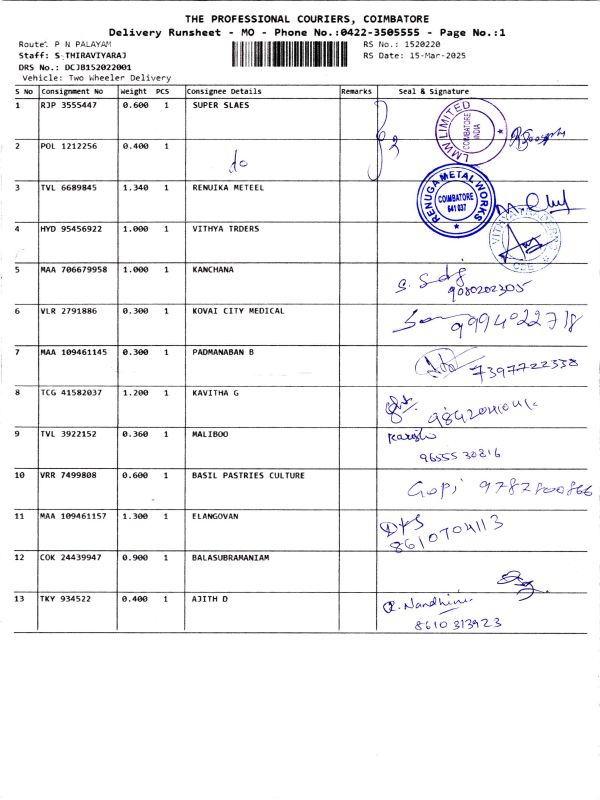 THE PROFESSIONAL COURIERS, COIMBATORE
Delivery Runsheet - MO - Phone No.:0422-3505555 - Page No.:1
Route: P N PALAYAM RS No.: 1520220
Staff: S THIRAVIYARAJ RS Date: 15-Mar-2025
DRS No.: DCJB152022001
Vehicle: Two Wheeler Delivery
S No Consignment No Weight PCS Consignee Details Remarks Seal & Signature
1 RJP 3555447 0.600 1 SUPER SLAES
LMW LIMITED COIMBATORE INDIA
2 POL 1212256 0.400 1 do
3 TVL 6689845 1.340 1 RENUIKA METEEL
RENUGA METAL WORKS COIMBATORE 641 037
4 HYD 95456922 1.000 1 VITHYA TRDERS
5 MAA 706679958 1.000 1 KANCHANA
9080202305
6 VLR 2791886 0.300 1 KOVAI CITY MEDICAL 9994022718
7 MAA 109461145 0.300 1 PADMANABAN B 7397722338
8 TCG 41582037 1.200 1 KAVITHA G
9 TVL 3922152 0.360 1 MALIBOO
9655530216
10 VRR 7499808 0.600 1 BASIL PASTRIES CULTURE Gopi 9787800866
11 MAA 109461157 1.300 1 ELANGOVAN
8610704113
12 COK 24439947 0.900 1 BALASUBRAMANIAM
13 TKY 934522 0.400 1 AJITH D R. Nandhini
8610313923